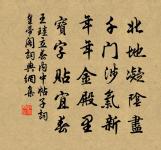 北地凝陰盡
千門淑氣新
年年金殿里
寶字貼宜春
王珪立春內中帖子詞
皇帝閣詞典網集